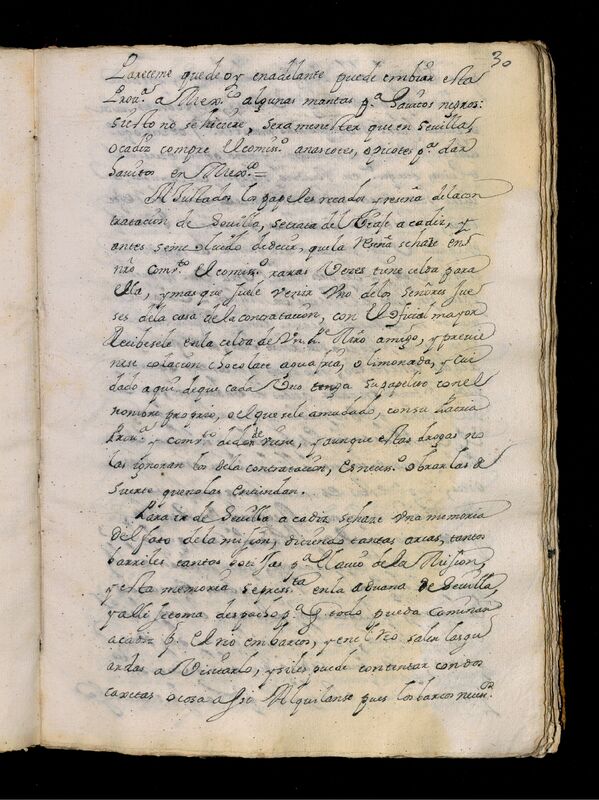 30
Pareceme que de oy en adelante puede embiar esta
Prou.ª a Mex.co algunas mantas p.ª hauitos negros:
si esto no se hiciere, sera menester que en Seuilla,
o cadiz compre el comiss.º anascotes, o picotes p.ª dar
hauitos en Mex.co =
Abultados los papeles recados y reseña dela con
tratacion de Seuilla, se trata del Viaje a cadiz, y
antes se me oluido dedecir, que la reseña se haze en
nro comv.to El comiss.º raras Vezes tiene celda para
ella, y mas que suele venir Vno delos Señores Jue
ses dela casa dela contratacion, con el oficial mayor
Recibesele en la celda de Vn P.e Nro amigo, y preuie
nese colacion chocolate agua fria, o limonada, y cui
dado aqui deque cada Vno tenga su papelito con el
nombre proprio, o el que sele a mudado, con su Patria
Prou.ª y comv.to de donde viene, y aunque estas drogas no
las ignoran los dela contratacion, es neces.º obrarlas de
suerte que no las entiendan.
Para ir de Seuilla a cadiz se haze Vna memoria
del fato dela mision, diciendo tantas arcas, tantos
barriles tantas botijas p.ª llauio de la Mission,
y esta memoria se pres.ta en la aduana de Seuilla,
y alli se toma despacho p.ª q todo pueda caminar
a cadiz p. El rio embarcos, y en el rio salen las gu
ardas a Visitarlo, y si les puede contentar con dos
caxetas o cosa assi Alquilanse pues los barcos neces.os